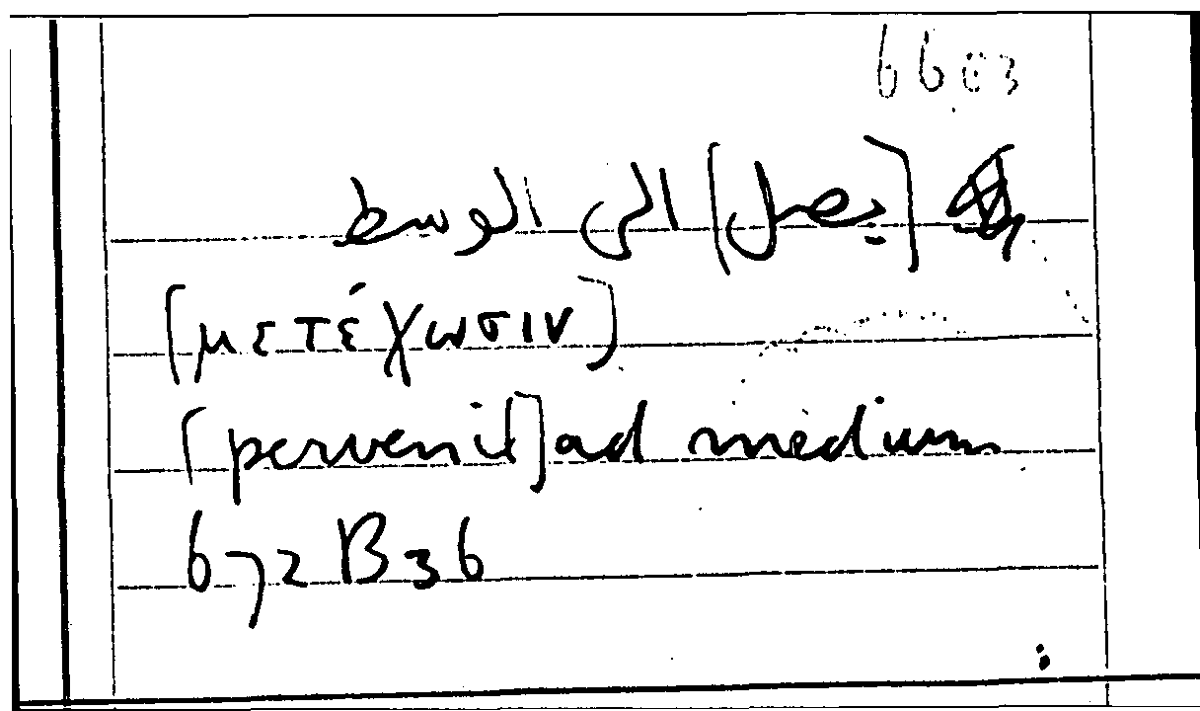 6603
[يصل] الى الوسط
[μετέχωσιν]
[pervenit] ad medium
672 B36